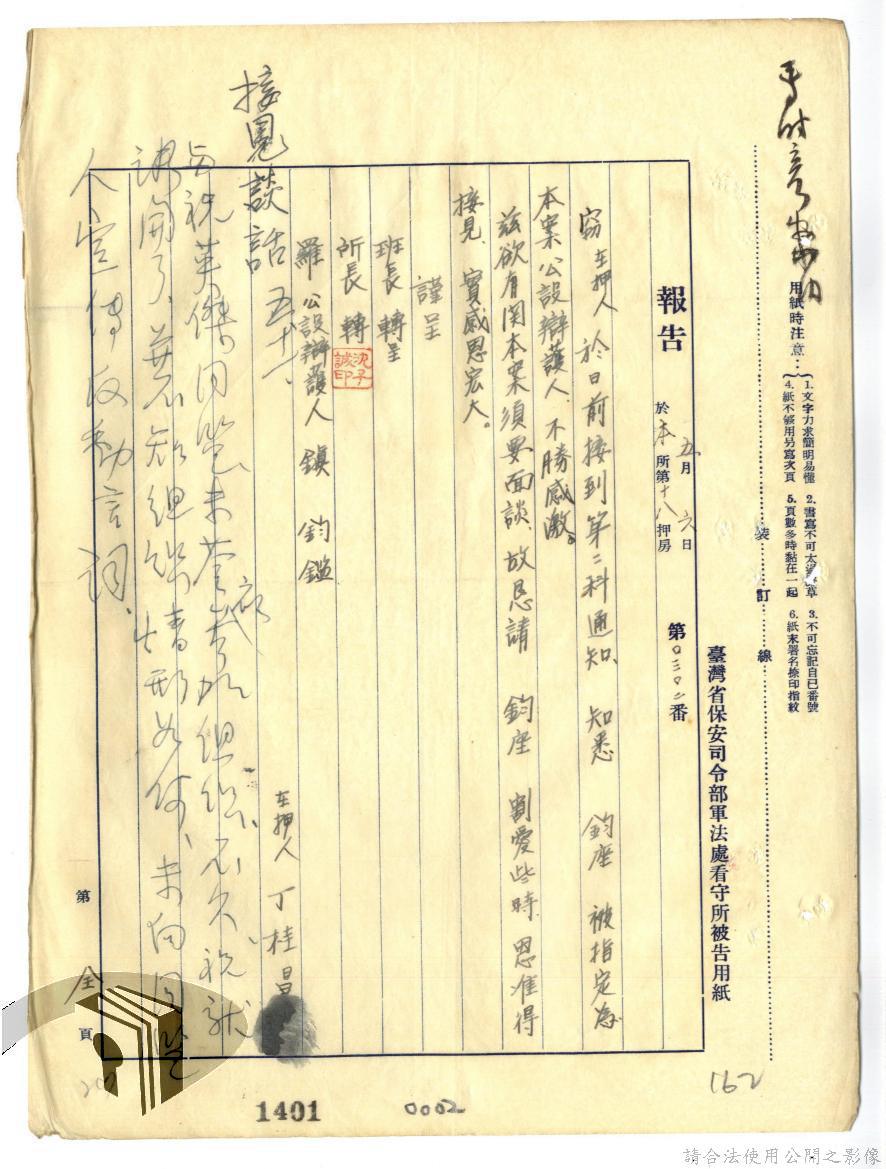 用紙時注意：
1. 文字力求簡明易懂 2. 書寫不可太潦草 3. 不可忘記自己番號
4. 紙不够用另寫次頁 5. 頁數多時黏在一起 6. 紙末署名捺印指紋
裝訂線
臺灣省保安司令部軍法處看守所被告用紙
報告 五月六日於本所第十八押房 第0三0二番
窃在押人於日前接到第二科通知、知悉 鈞座 被指定為
本案公設辯護人、不勝感激。
茲欲有関本案須要面談、故恳請 鈞座 割愛些時、恩准得
接見、實感恩宏大。
謹呈
班長 轉呈
所長 轉
沈子誠印
羅 公設辯護人 鎮 鈞鑑
在押人 丁桂昌
接見談話 五十一、
與祝英傑同鑒未答應參加組織、不久祝就
離開了、並不知組織情形如何、未向同鑒
人宣傳反動言詞、
第 全 頁
1401
0002
162
請合法使用公開之影像